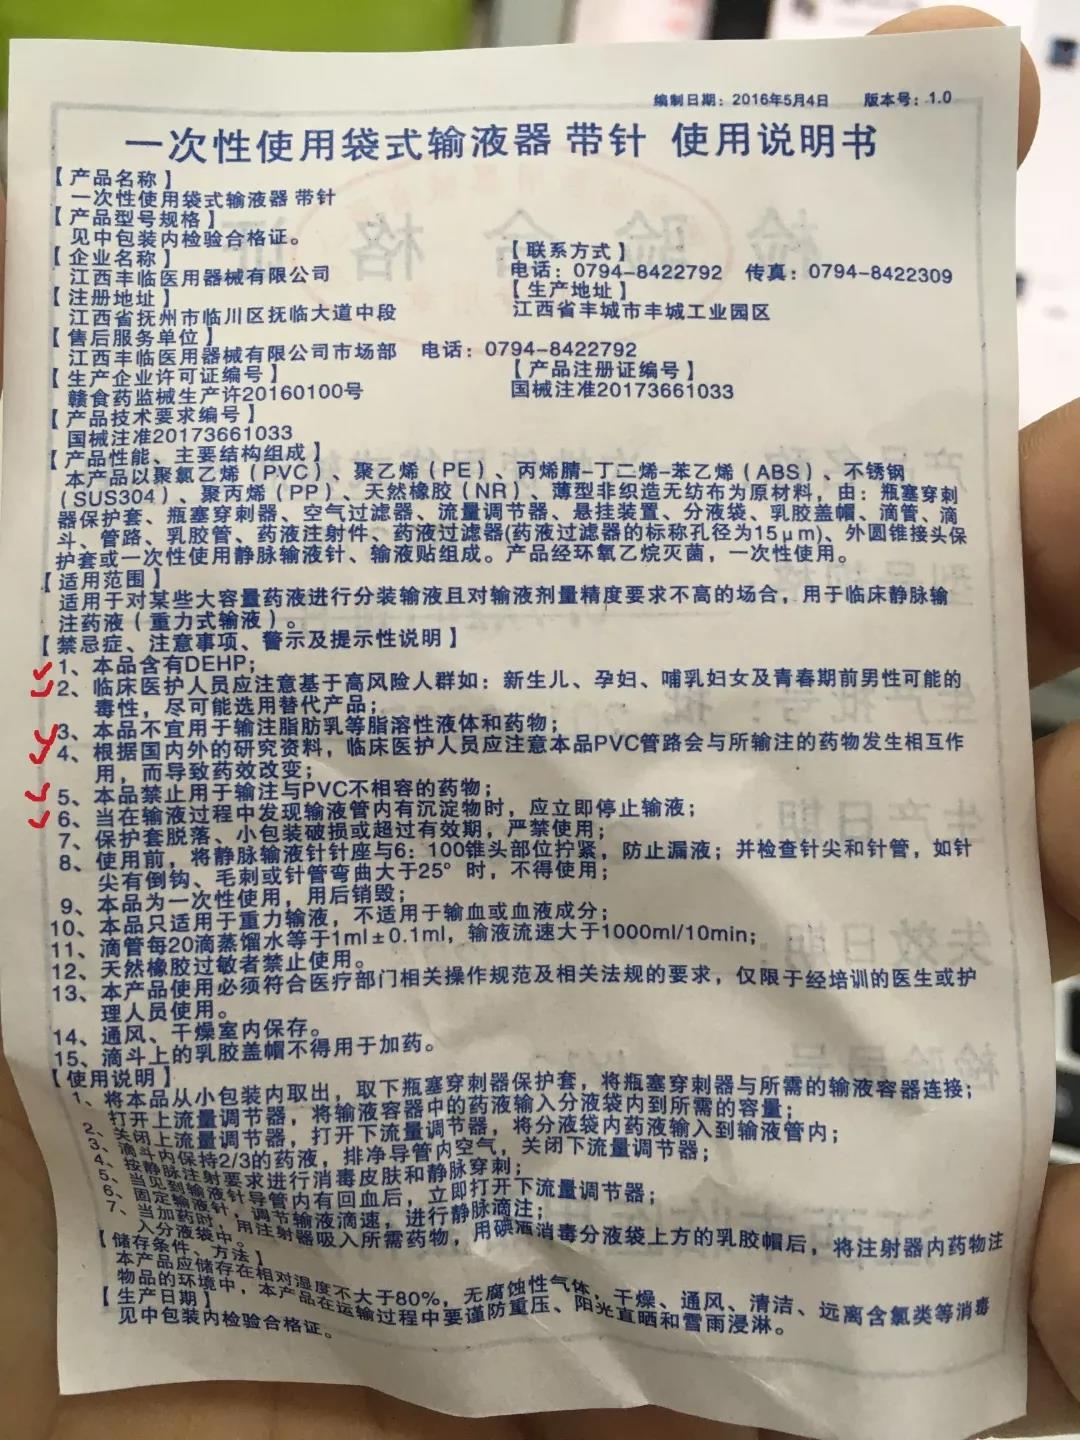 编制日期：2016年5月4日 版本号：1.0
一次性使用袋式输液器 带针 使用说明书
【产品名称】
一次性使用袋式输液器 带针
【产品型号规格】
见中包装内检验合格证。
【企业名称】
江西丰临医用器械有限公司
【联系方式】
电话：0794-8422792 传真：0794-8422309
【注册地址】
江西省抚州市临川区抚临大道中段
【生产地址】
江西省丰城市丰城工业园区
【售后服务单位】
江西丰临医用器械有限公司市场部 电话：0794-8422792
【生产企业许可证编号】
赣食药监械生产许20160100号
【产品注册证编号】
国械注准20173661033
【产品技术要求编号】
国械注准20173661033
【产品性能、主要结构组成】
本产品以聚氯乙烯（PVC）、聚乙烯（PE）、丙烯腈-丁二烯-苯乙烯（ABS）、不锈钢
（SUS304）、聚丙烯（PP）、天然橡胶（NR）、薄型非织造无纺布为原材料，由：瓶塞穿刺
器保护套、瓶塞穿刺器、空气过滤器、流量调节器、悬挂装置、分液袋、乳胶盖帽、滴管、滴
斗、管路、乳胶管、药液注射件、药液过滤器(药液过滤器的标称孔径为15μm)、外圆锥接头保
护套或一次性使用静脉输液针、输液贴组成。产品经环氧乙烷灭菌，一次性使用。
【适用范围】
适用于对某些大容量药液进行分装输液且对输液剂量精度要求不高的场合，用于临床静脉输
注药液（重力式输液）。
【禁忌症、注意事项、警示及提示性说明】
1、本品含有DEHP；
2、临床医护人员应注意基于高风险人群如：新生儿、孕妇、哺乳妇女及青春期前男性可能的
毒性，尽可能选用替代产品；
3、本品不宜用于输注脂肪乳等脂溶性液体和药物；
4、根据国内外的研究资料，临床医护人员应注意本品PVC管路会与所输注的药物发生相互作
用，而导致药效改变；
5、本品禁止用于输注与PVC不相容的药物；
6、当在输液过程中发现输液管内有沉淀物时，应立即停止输液；
7、保护套脱落、小包装破损或超过有效期，严禁使用；
8、使用前，将静脉输液针针座与6：100锥头部位拧紧，防止漏液；并检查针尖和针管，如针
尖有倒钩、毛刺或针管弯曲大于25°时，不得使用；
9、本品为一次性使用，用后销毁；
10、本品只适用于重力输液，不适用于输血或血液成分；
11、滴管每20滴蒸馏水等于1ml±0.1ml，输液流速大于1000ml/10min；
12、天然橡胶过敏者禁止使用。
13、本产品使用必须符合医疗部门相关操作规范及相关法规的要求，仅限于经培训的医生或护
理人员使用。
14、通风、干燥室内保存。
15、滴斗上的乳胶盖帽不得用于加药。
【使用说明】
1、将本品从小包装内取出，取下瓶塞穿刺器保护套，将瓶塞穿刺器与所需的输液容器连接；
打开上流量调节器，将输液容器中的药液输入分液袋内到所需的容量；
2、关闭上流量调节器，打开下流量调节器，将分液袋内药液输入到输液管内；
3、滴斗内保持2/3的药液，排净导管内空气，关闭下流量调节器；
4、按静脉注射要求进行消毒皮肤和静脉穿刺；
5、当见到输液针导管内有回血后，立即打开下流量调节器；
6、固定输液针，调节输液滴速，进行静脉滴注；
7、当加药时，用注射器吸入所需药物，用碘酒消毒分液袋上方的乳胶帽后，将注射器内药物注
入分液袋中。
【储存条件、方法】
本产品应储存在相对湿度不大于80%，无腐蚀性气体，干燥、通风、清洁、远离含氯类等消毒
物品的环境中，本产品在运输过程中要谨防重压、阳光直晒和雪雨浸淋。
【生产日期】
见中包装内检验合格证。